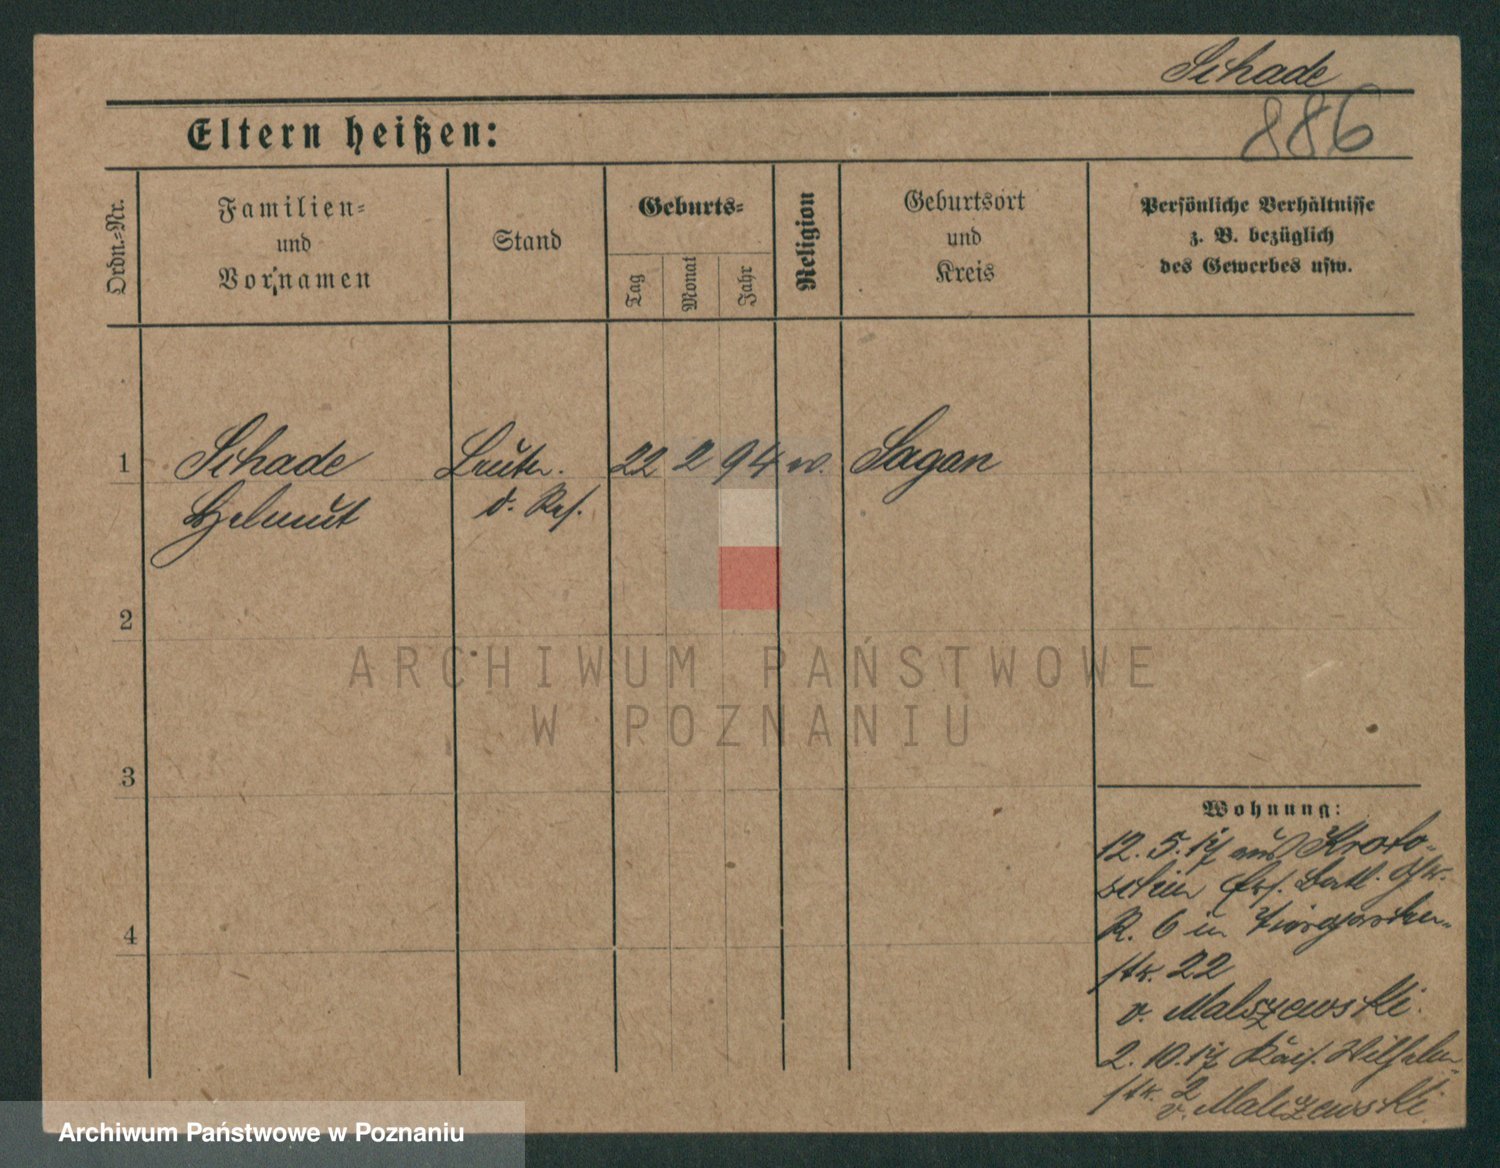 Schade
886
Eltern heißen:
Ordn.-Nr.
Familien-
und
Vornamen
Stand
Geburts-
Tag
Monat
Jahr
Religion
Geburtsort
und
Kreis
Persönliche Verhältnisse
z. B. bezüglich
des Gewerbes usw.
1 Schade Leutn. 22 2 94 Sagan
Helmut d. Res.
2
3
4
ARCHIWUM PAŃSTWOWE
W POZNANIU
Wohnung:
12. 5. 17 aus Kroto-
schin Ers. Batl.
R. 6 in
str. 22
v. Malszewski.
2. 10. 17 Kais. Wilhelm-
str. 2
v. Maliszewski.
Archiwum Państwowe w Poznaniu